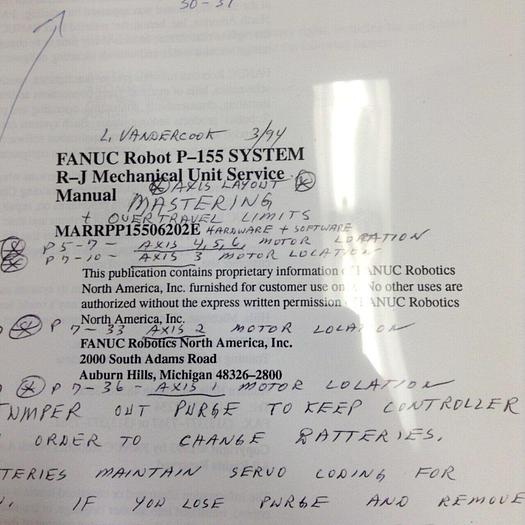 30-31
L. VANDERCOOK 3/94
FANUC Robot P-155 SYSTEM
R-J Mechanical Unit Service
AXIS LAYOUT
Manual MASTERING
+ OVERTRAVEL LIMITS
MARRPP15506202E HARDWARE + SOFTWARE
P 5-7- AXIS 4,5,6, MOTOR LOCATION
P 7-10- AXIS 3 MOTOR LOCATION
This publication contains proprietary information FANUC Robotics
North America, Inc. furnished for customer use No other uses are
authorized without the express written permission FANUC Robotics
North America, Inc.
P 7-33 AXIS 2 MOTOR LOCATION
FANUC Robotics North America, Inc.
2000 South Adams Road
Auburn Hills, Michigan 48326-2800
P 7-36- AXIS 1 MOTOR LOCATION
JUMPER OUT PURGE TO KEEP CONTROLLER
ORDER TO CHANGE BATTERIES.
TERIES MAINTAIN SERVO CODING FOR
IF YOU LOSE PURGE AND REMOVE